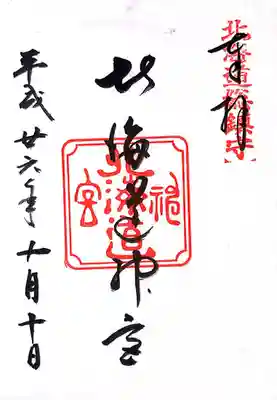 北海道総鎮守
奉拝
北海道神宮
北海道神宮
平成廿六年十月十日